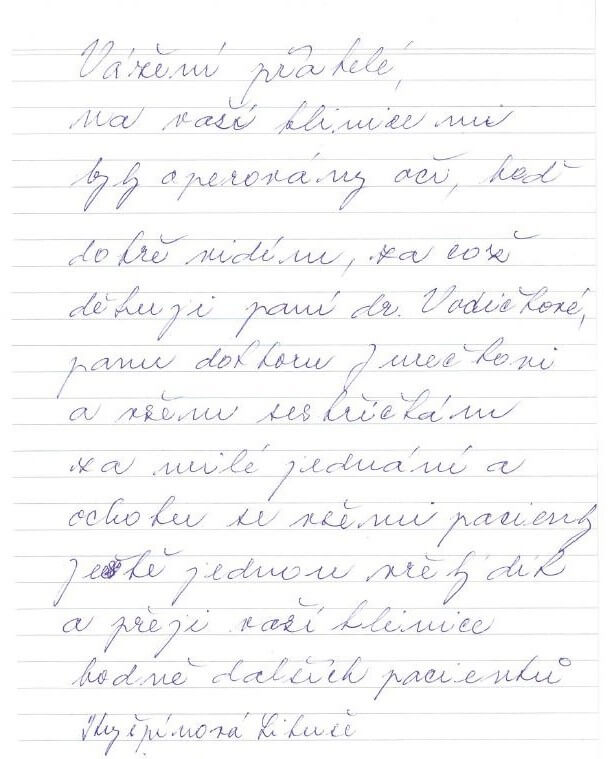 Vážení přátelé,
na vaší klinice mi
byly operovány oči, teď
dobře vidím, za což
děkuji paní dr. Vodičkové,
panu doktoru Jurečkovi
a všem sestřičkám
za milé jednání a
ochotu se všemi pacienty
ještě jednou vřelý dík
a přeji vaší klinice
hodně dalších pacientů
Libuše